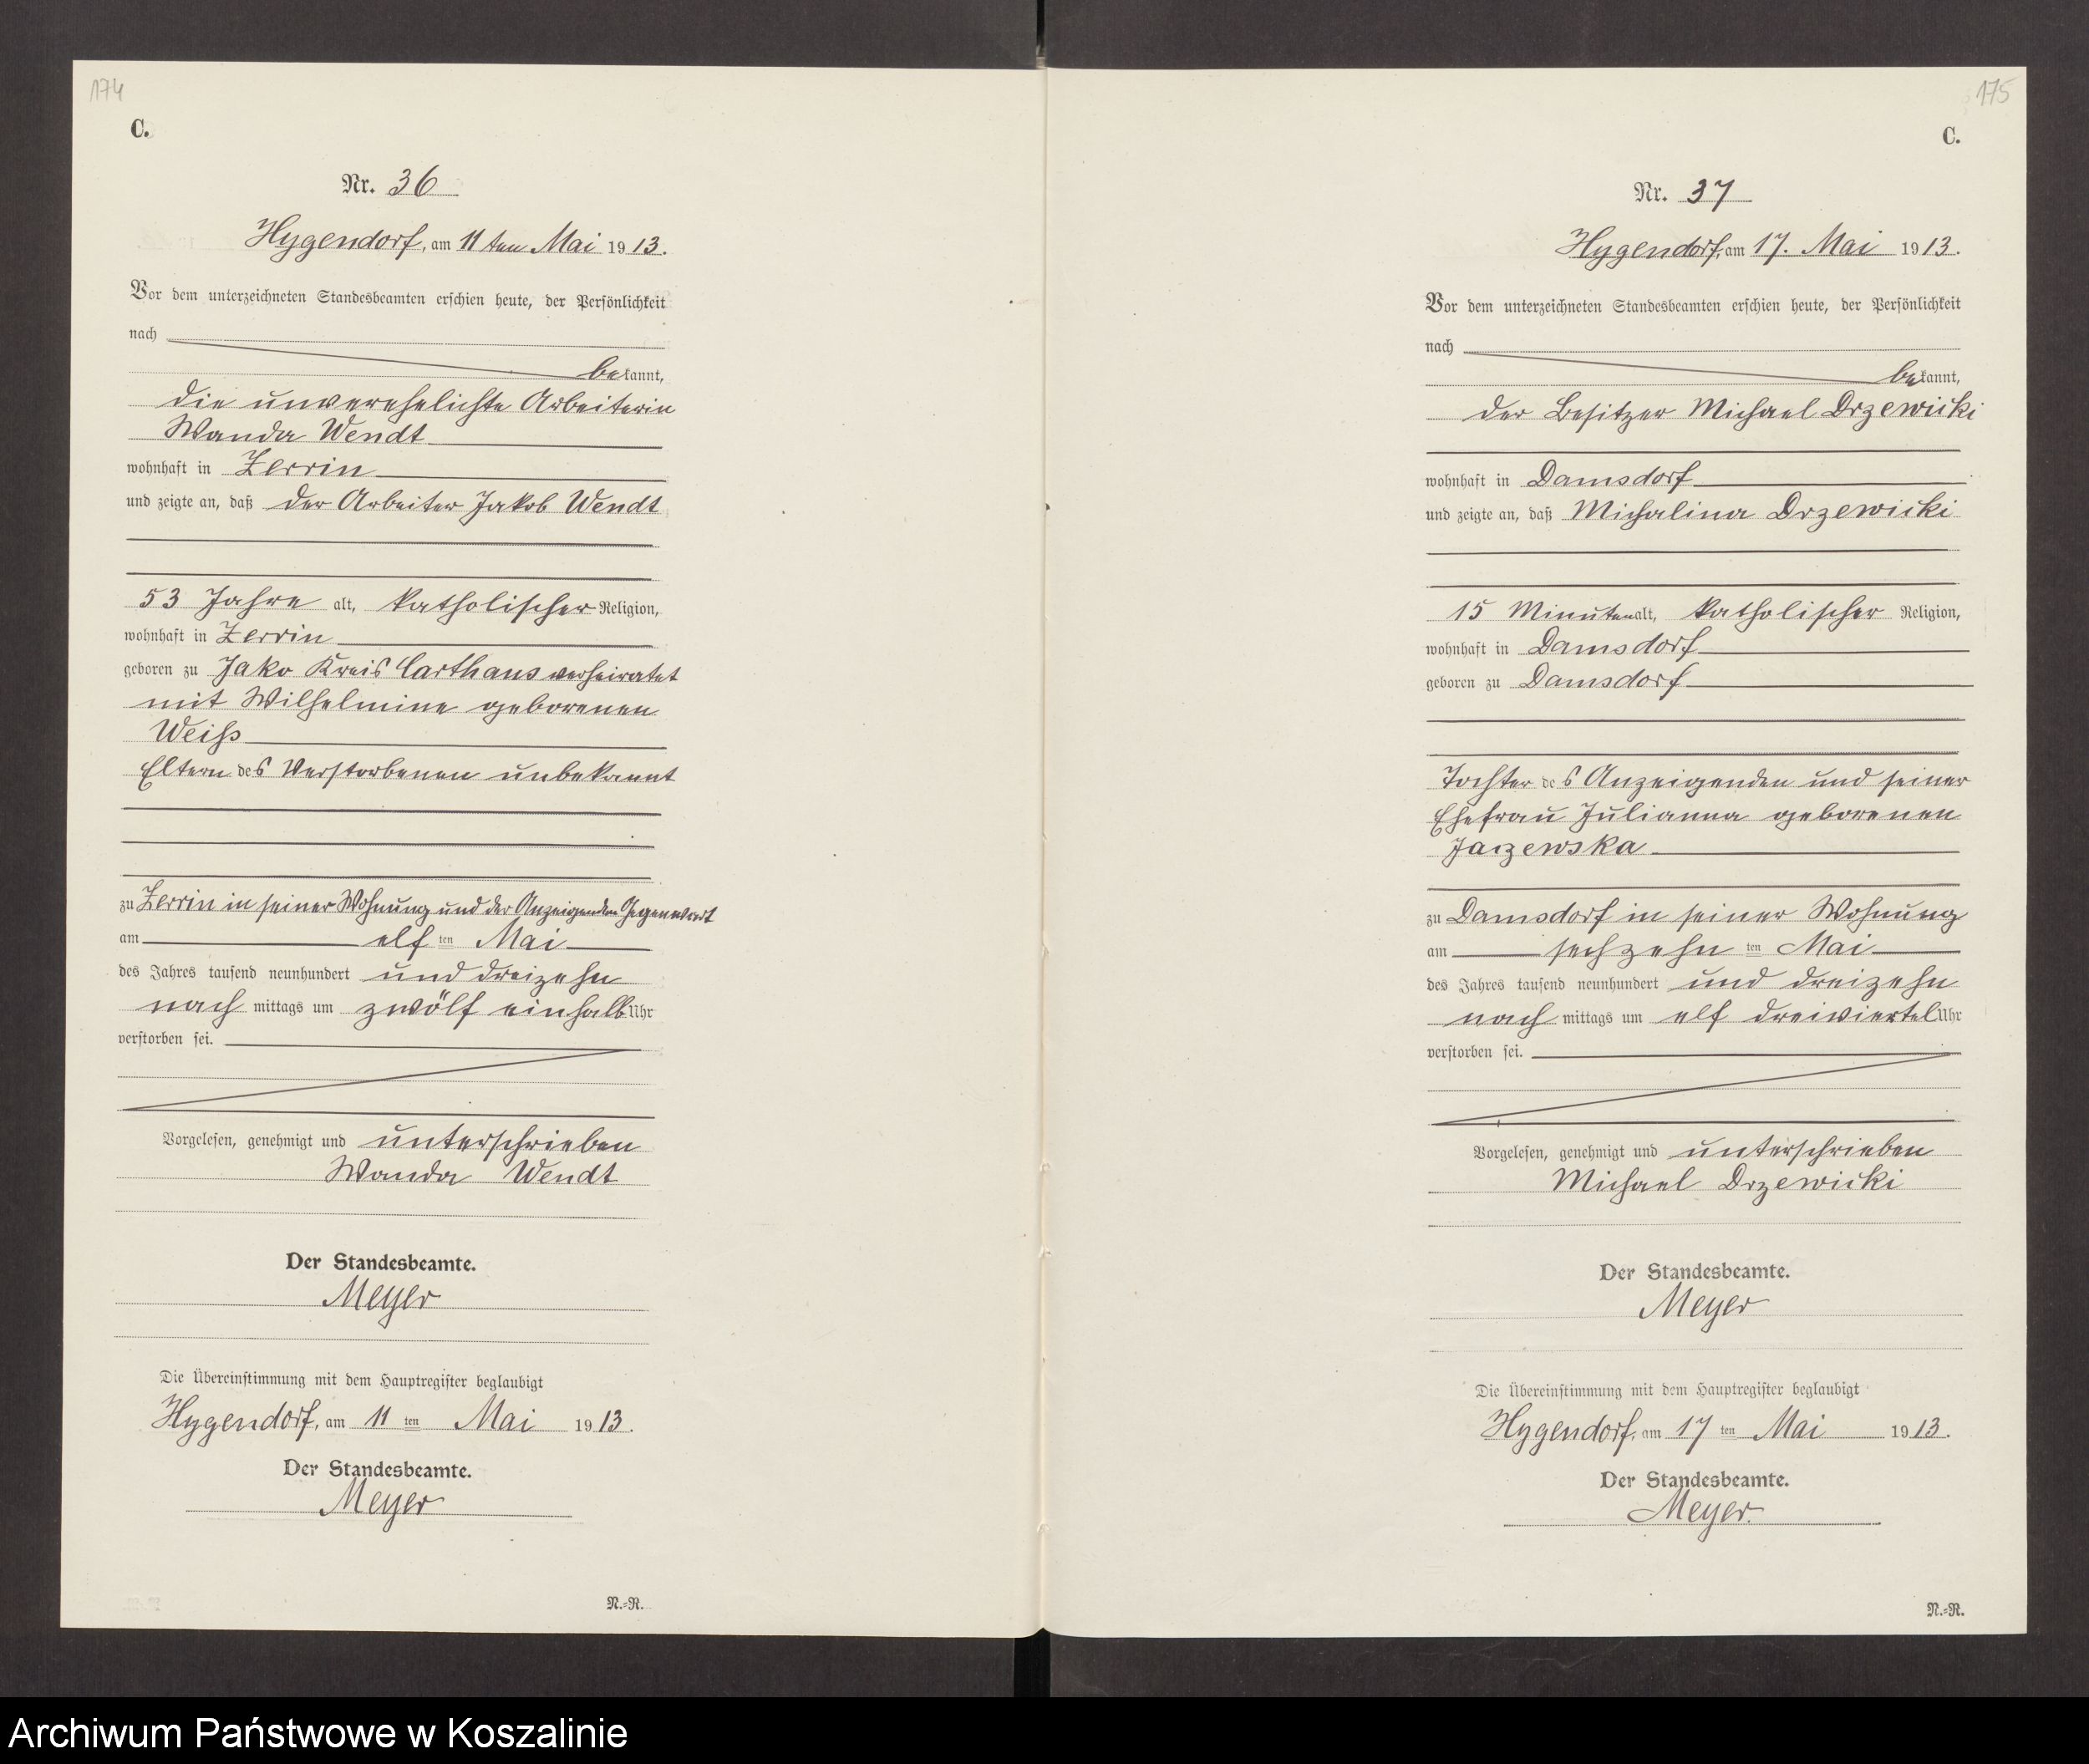 174
C.
Nr. 36
Hygendorf, am 11ten Mai 1913.
Vor dem unterzeichneten Standesbeamten erschien heute, der Persönlichkeit
nach
bekannt,
die unverehelichte Arbeiterin
Wanda Wendt
wohnhaft in Zerrin
und zeigte an, daß der Arbeiter Jakob Wendt
53 Jahre alt, katholischer Religion,
wohnhaft in Zerrin
geboren zu Jako Kreis Carthaus verheiratet
mit Wilhelmine geborenen
Weiß
Eltern des Verstorbenen unbekannt
zu Zerrin in seiner Wohnung und der Anzeigenden Gegenwart
am elf ten Mai
des Jahres tausend neunhundert und dreizehn
nach mittags um zwölf einhalb Uhr
verstorben sei.
Vorgelesen, genehmigt und unterschrieben
Wanda Wendt
Der Standesbeamte.
Meyer
Die Übereinstimmung mit dem Hauptregister beglaubigt
Hygendorf, am 11 ten Mai 1913.
Der Standesbeamte.
Meyer
N.-R.
175
C.
Nr. 37
Hygendorf, am 17. Mai 1913.
Vor dem unterzeichneten Standesbeamten erschien heute, der Persönlichkeit
nach
bekannt,
der Besitzer Michael Drzewicki
wohnhaft in Damsdorf
und zeigte an, daß Michalina Drzewicki
15 Minuten alt, katholischer Religion,
wohnhaft in Damsdorf
geboren zu Damsdorf
Tochter des Anzeigenden und seiner
Ehefrau Julianna geborenen
zu Damsdorf in seiner Wohnung
am sechzehn ten Mai
des Jahres tausend neunhundert und dreizehn
nach mittags um elf dreiviertel Uhr
verstorben sei.
Vorgelesen, genehmigt und unterschrieben
Michael Drzewicki
Der Standesbeamte.
Meyer
Die Übereinstimmung mit dem Hauptregister beglaubigt
Hygendorf, am 17 ten Mai 1913.
Der Standesbeamte.
Meyer.
N.-R.
Archiwum Państwowe w Koszalinie